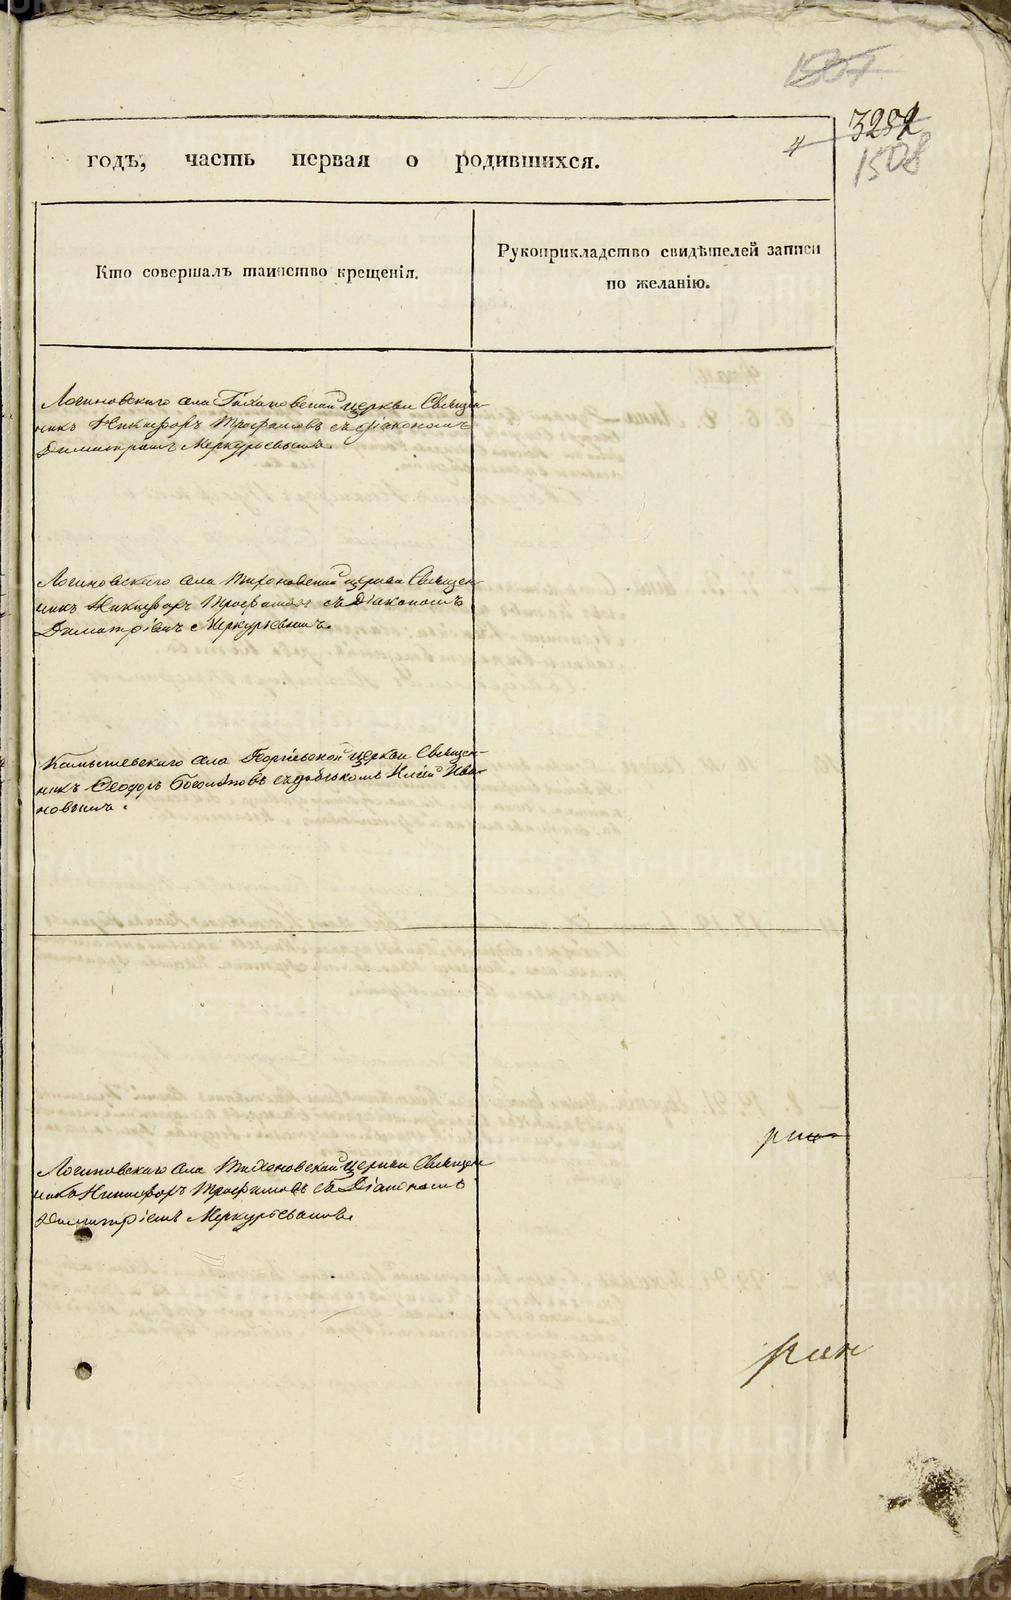 1507
3252
1508
годъ, часть первая о родившихся.
Кто совершалъ таинство крещенія.
Рукоприкладство свидѣтелей записи
по желанію.
Логиновскаго села Тихоновской церкви Священ-
никъ Никифоръ Трофимовъ съ діакономъ
Димитріемъ Меркурьевымъ.
Логиновскаго села Тихоновской церкви Священ-
никъ Никифоръ Трофимовъ съ Діакономъ
Димитріемъ Меркурьевымъ.
Камышевскаго села Георгіевской церкви Священ-
никъ Ѳеодоръ Боголѣповъ съ дьячкомъ Иліей Ива-
новымъ.
Логиновскаго села Тихоновской церкви Священ-
никъ Никифоръ Трофимовъ съ Діакономъ
Димитріемъ Меркурьевымъ.
METRIKI.GASO-URAL.RU